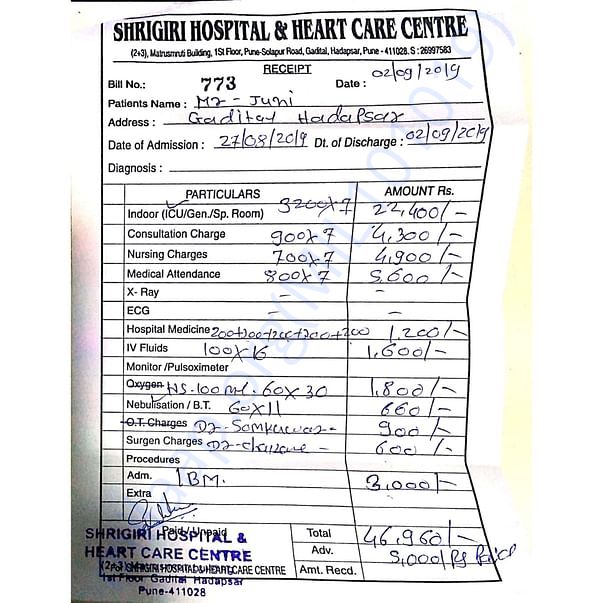 SHRIGIRI HOSPITAL & HEART CARE CENTRE
(2+3), Matrusmruti Building, 1St Floor, Pune-Solapur Road, Gadital, Hadapsar, Pune - 411028. S : 26997583
RECEIPT
Bill No.: 773 Date : 02/09/2019
Patients Name : Mr - Juni
Address : Gadital Hadapsar
Date of Admission : 27/08/2019 Dt. of Discharge : 02/09/2019
Diagnosis :
PARTICULARS AMOUNT Rs.
Indoor (ICU/Gen./Sp. Room) 3200x7 22,400/-
Consultation Charge 900x7 4,300/-
Nursing Charges 700x7 4,900/-
Medical Attendance 800x7 5,600/-
X- Ray - -
ECG - -
Hospital Medicine 200+200+200+200+200 1,200/-
IV Fluids 100x16 1,600/-
Monitor /Pulsoximeter
Oxygen NS-100ml. 60x30 1,800/-
Nebulisation / B.T. 60x11 660/-
O.T. Charges Dr- 900/-
Surgen Charges Dr- 600/-
Procedures
Adm. I.B.M. 3,000/-
Extra
Paid / Unpaid Total 46,960/-
SHRIGIRI HOSPITAL &
HEART CARE CENTRE Adv. 5,000/Rs Paid
For SHRIGIRI HOSPITAL & HEART CARE CENTRE Amt. Recd.
(2+3)
1st Floor Gadital Hadapsar
Pune-411028